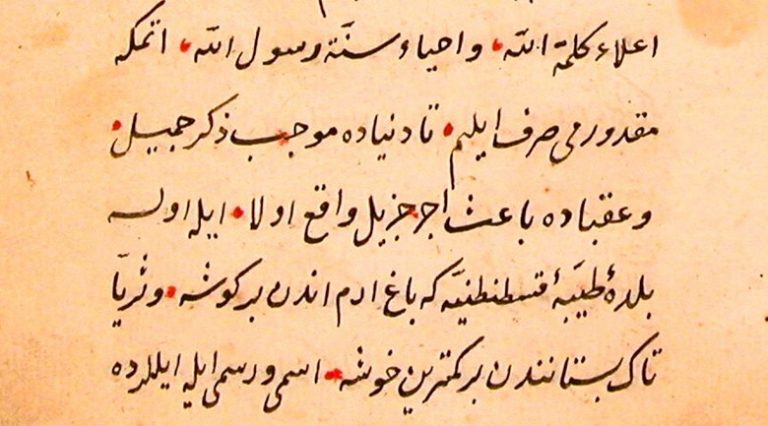 اعلاء كلمة الله، و احياء سنّة رسول الله، اتمكه
مقدورمى صرف ايليم، تا دنياده موجب ذكر جميل،
و عقباده باعث اجر جزيل واقع اولا، ايله اولسه
بلدهٔ طيّبهٔ قسطنطنيّه كه باغ ارم اندن بر كوشه، و ثريّا
تاك بستانندن بر كمترين خوشه، اسمى و رسمى ايله ايللرده